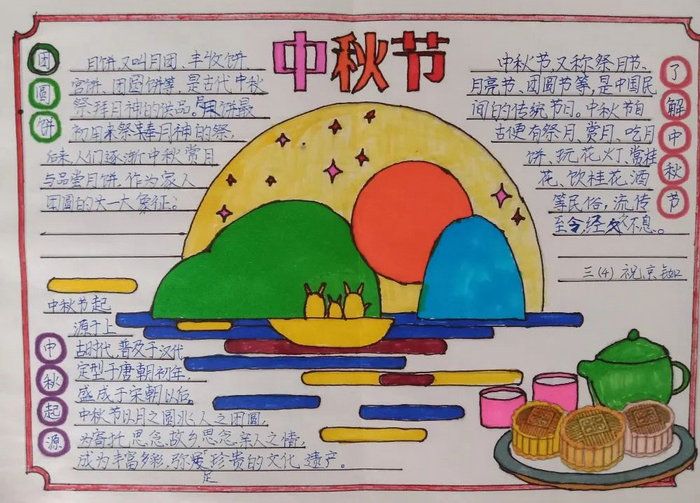 中秋节
团圆饼
月饼又叫月团、丰收饼、
宫饼、团圆饼等，是古代中秋
祭拜月神的供品。月饼最
初用来祭奉月神的祭，
后来人们逐渐中秋赏月
与品尝月饼，作为家人
团圆的大一大象征。
了解中秋节
中秋节又称祭月节、
月亮节、团圆节等，是中国民
间的传统节日。中秋节自
古便有祭月、赏月、吃月
饼、玩花灯、赏桂
花、饮桂花酒
等民俗，流传
至今，经久不息。
三(4) 祝京
中秋起源
中秋节起
源于上
古时代，普及于汉代
定型于唐朝初年，
盛成于宋朝以后
中秋节以月之圆兆人之团圆，
为寄托思念故乡思念亲人之情，
成为丰富多彩，弥足珍贵的文化遗产。